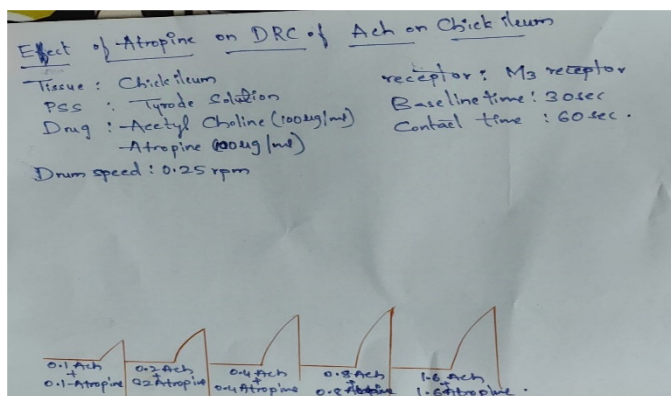 Effect of Atropine on DRC of Ach on Chick ileum
Tissue : Chick ileum
PSS : Tyrode Solution
Drug : Acetyl Choline (100ug/ml)
Atropine (100ug/ml)
Drum speed : 0.25 rpm
receptor : M3 receptor
Baseline time : 30sec
Contact time : 60sec.
0.1 Ach
+
0.1-Atropine
0.2 Ach
+
0.2 Atropine
0.4 Ach
+
0.4 Atropine
0.8 Ach
+
0.8 Atropine
1.6 Ach
+
1.6 Atropine.